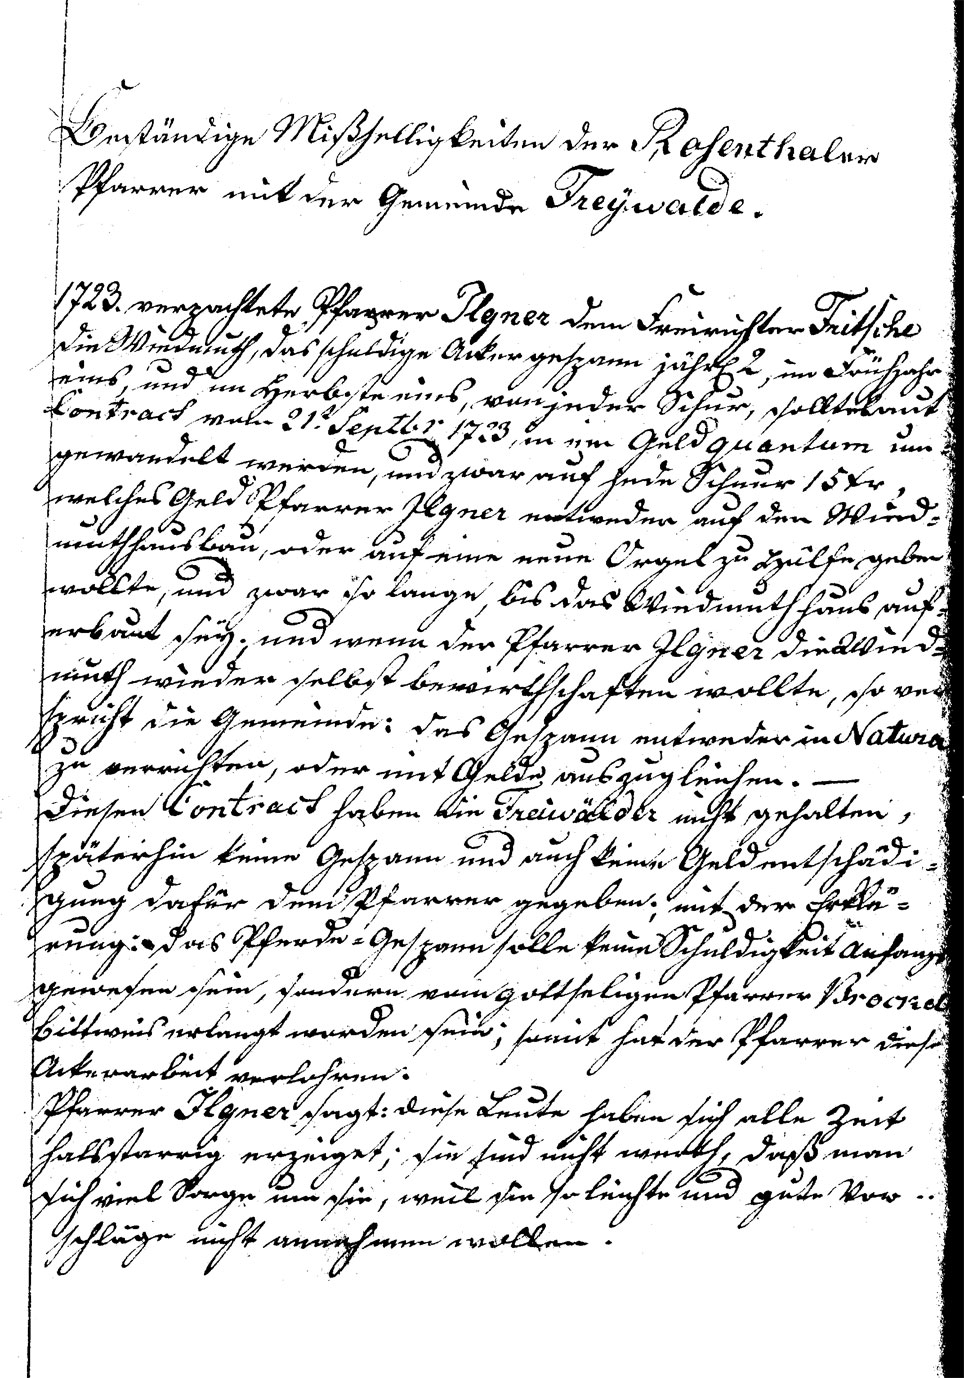 Beständige Mißhelligkeiten der Rosenthaler
Pfarrer mit der Gemeinde Freÿwalde.
1723. verpachtete Pfarrer Ilgner dem Freirichter Fritsche
die Wiedmuth, das schuldige Ackergespann jährl 2, im Frühjahr
eins, und im Herbste eins, von jeder Schur, sollte laut
Contract vom 21t Septbr 1723, in ein Geldquantum um=
gewandelt werden, und zwar auf jede Schuur 15 kr,
welches Geld Pfarrer Ilgner entweder auf den Wied=
muthhausbau, oder auf eine neue Orgel zu Hülfe geben
wollte, und zwar so lange, bis das Wiedmuthhaus auf=
erbaut seÿ; und wenn der Pfarrer Ilgner die Wied=
muth wieder selbst bewirthschaften wollte, so ver
spricht die Gemeinde: das Gespann entweder in Natura
zu verrichten, oder mit Gelde auszugleichen. —
Diesen Contract haben die Freiwälder nicht gehalten,
späterhin keine Gespann und auch keine Geldentschädi=
gung dafür dem Pfarrer gegeben; mit der Erklä=
rung: das Pferde=Gespann solle keine Schuldigkeit Anfangs
gewesen sein, sondern vom gottseligen Pfarrer Brockel
bittweis erlangt worden sein; somit hat der Pfarrer diese
Ackerarbeit verlohren.
Pfarrer Ilgner sagt: diese Leute haben sich alle Zeit
halsstarrig erzeiget; sie sind nicht werth, daß man
sich viel Sorge um sie, weil sie so leichte und gute Vor=
schläge nicht annehmen wollen.